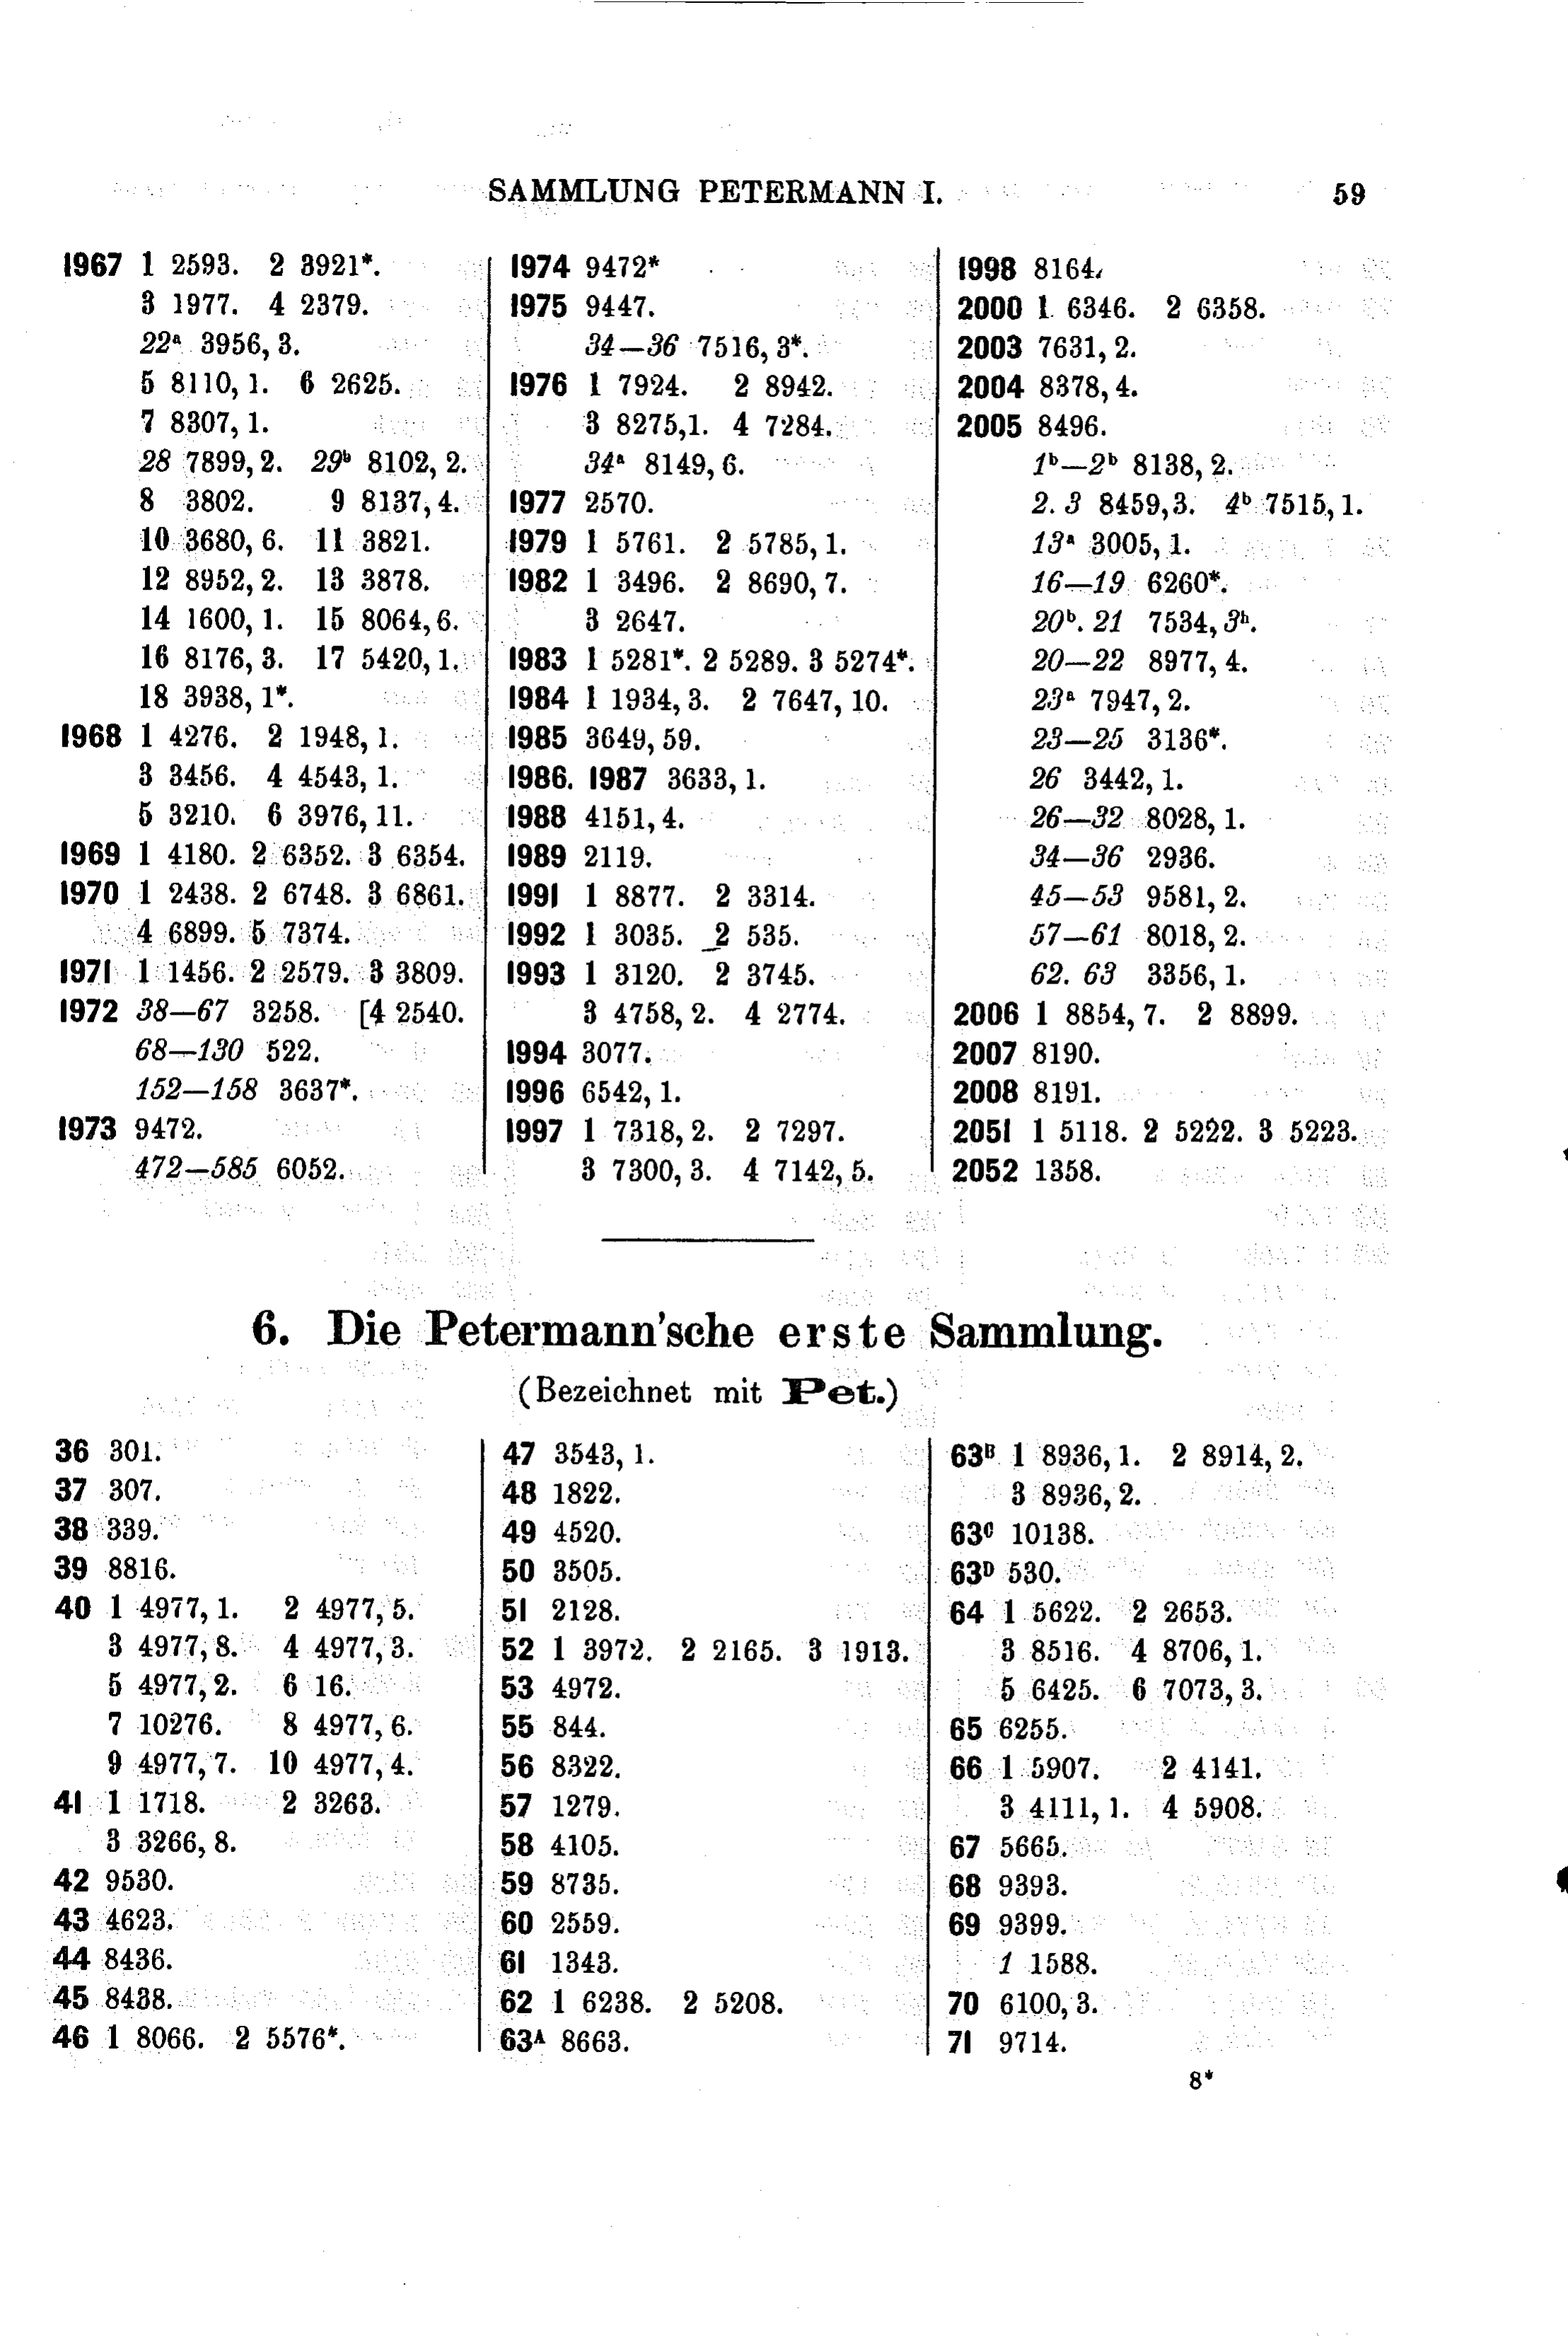 SAMMLUNG PETERMANN I. 59
1967 1 2593. 2 3921*.
3 1977. 4 2379.
22ª 3956, 3.
5 8110, 1. 6 2625.
7 8307, 1.
28 7899, 2. 29ᵇ 8102, 2.
8 3802. 9 8137, 4.
10 3680, 6. 11 3821.
12 8952, 2. 13 3878.
14 1600, 1. 15 8064, 6.
16 8176, 3. 17 5420, 1.
18 3938, 1*.
1968 1 4276. 2 1948, 1.
3 3456. 4 4543, 1.
5 3210. 6 3976, 11.
1969 1 4180. 2 6352. 3 6354.
1970 1 2438. 2 6748. 3 6861.
4 6899. 5 7374.
1971 1 1456. 2 2579. 3 3809.
1972 38—67 3258. [4 2540.
68—130 522.
152—158 3637*.
1973 9472.
472—585 6052.
1974 9472*
1975 9447.
34—36 7516, 3*.
1976 1 7924. 2 8942.
3 8275,1. 4 7284.
34ª 8149, 6.
1977 2570.
1979 1 5761. 2 5785, 1.
1982 1 3496. 2 8690, 7.
3 2647.
1983 1 5281*. 2 5289. 3 5274*.
1984 1 1934, 3. 2 7647, 10.
1985 3649, 59.
1986. 1987 3633, 1.
1988 4151, 4.
1989 2119.
1991 1 8877. 2 3314.
1992 1 3035. 2 535.
1993 1 3120. 2 3745.
3 4758, 2. 4 2774.
1994 3077.
1996 6542, 1.
1997 1 7318, 2. 2 7297.
3 7300, 3. 4 7142, 5.
1998 8164.
2000 1 6346. 2 6358.
2003 7631, 2.
2004 8378, 4.
2005 8496.
1ᵇ—2ᵇ 8138, 2.
2. 3 8459,3. 4ᵇ 7515, 1.
13ª 3005, 1.
16—19 6260*.
20ᵇ. 21 7534, 3ʰ.
20—22 8977, 4.
23ª 7947, 2.
23—25 3136*.
26 3442, 1.
26—32 8028, 1.
34—36 2936.
45—53 9581, 2.
57—61 8018, 2.
62. 63 3356, 1.
2006 1 8854, 7. 2 8899.
2007 8190.
2008 8191.
2051 1 5118. 2 5222. 3 5223.
2052 1358.
6. Die Petermann'sche erste Sammlung.
(Bezeichnet mit Pet.)
36 301.
37 307.
38 339.
39 8816.
40 1 4977, 1. 2 4977, 5.
3 4977, 8. 4 4977, 3.
5 4977, 2. 6 16.
7 10276. 8 4977, 6.
9 4977, 7. 10 4977, 4.
41 1 1718. 2 3263.
3 3266, 8.
42 9530.
43 4623.
44 8436.
45 8438.
46 1 8066. 2 5576*.
47 3543, 1.
48 1822.
49 4520.
50 3505.
51 2128.
52 1 3972. 2 2165. 3 1913.
53 4972.
55 844.
56 8322.
57 1279.
58 4105.
59 8735.
60 2559.
61 1343.
62 1 6238. 2 5208.
63ᴬ 8663.
63ᴮ 1 8936, 1. 2 8914, 2.
3 8936, 2.
63ᶜ 10138.
63ᴰ 530.
64 1 5622. 2 2653.
3 8516. 4 8706, 1.
5 6425. 6 7073, 3.
65 6255.
66 1 5907. 2 4141.
3 4111, 1. 4 5908.
67 5665.
68 9393.
69 9399.
1 1588.
70 6100, 3.
71 9714.
8*